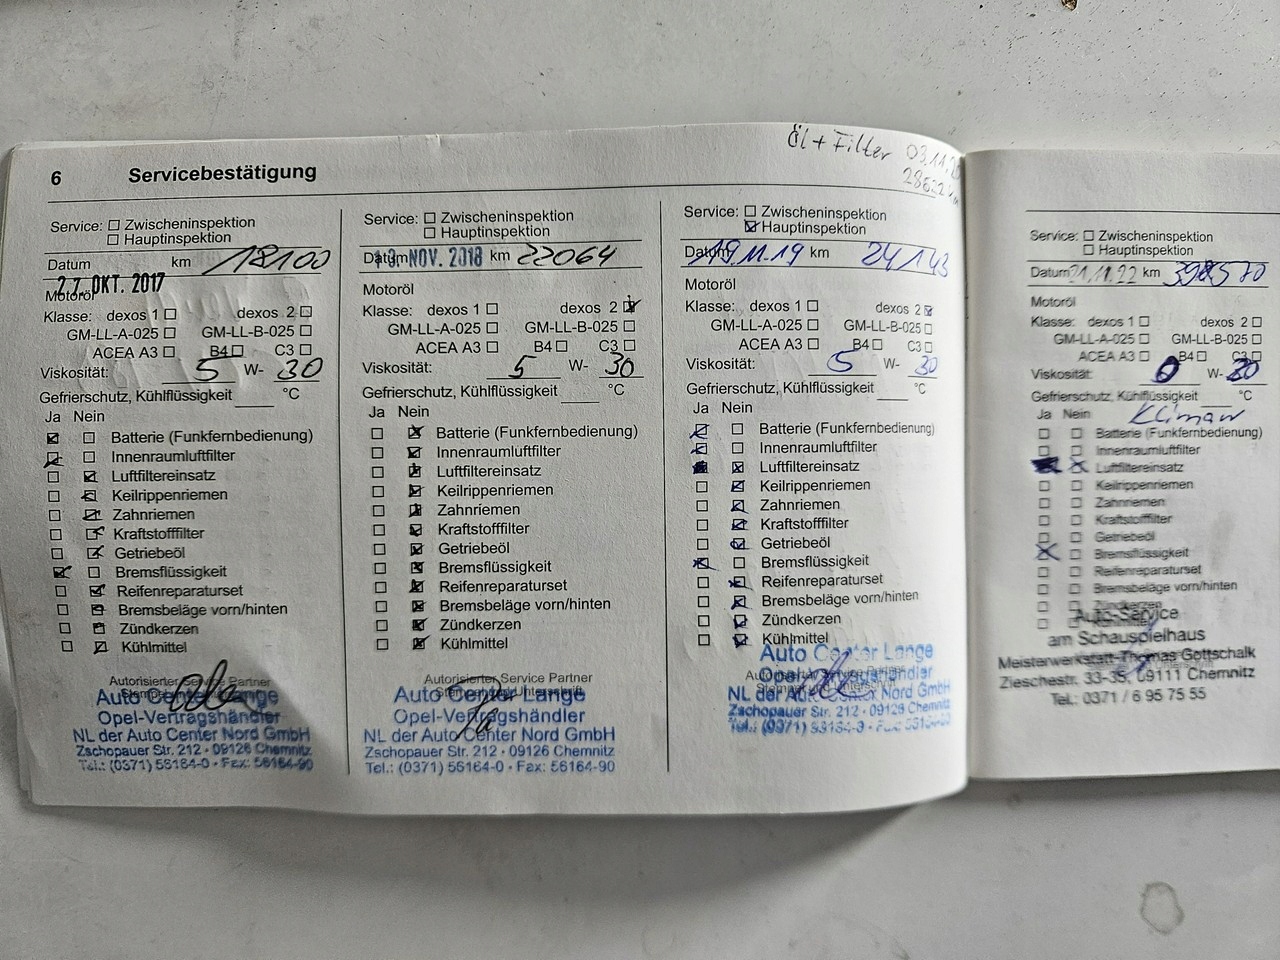 6 Servicebestätigung
Öl + Filter 03.11.
Service: Zwischeninspektion
Hauptinspektion
Datum km 18100
27. OKT. 2017
Motoröl
Klasse: dexos 1 dexos 2
GM-LL-A-025 GM-LL-B-025
ACEA A3 B4 C3
Viskosität: 5 W- 30
Gefrierschutz, Kühlflüssigkeit °C
Ja Nein
Batterie (Funkfernbedienung)
Innenraumluftfilter
Luftfiltereinsatz
Keilrippenriemen
Zahnriemen
Kraftstofffilter
Getriebeöl
Bremsflüssigkeit
Reifenreparaturset
Bremsbeläge vorn/hinten
Zündkerzen
Kühlmittel
Autorisierter Service Partner
Auto Center Lange
Opel-Vertragshändler
NL der Auto Center Nord GmbH
Zschopauer Str. 212 · 09126 Chemnitz
Tel.: (0371) 56164-0 · Fax: 56164-90
Service: Zwischeninspektion
Hauptinspektion
Datum NOV. 2018 km 22064
Motoröl
Klasse: dexos 1 dexos 2
GM-LL-A-025 GM-LL-B-025
ACEA A3 B4 C3
Viskosität: 5 W- 30
Gefrierschutz, Kühlflüssigkeit °C
Ja Nein
Batterie (Funkfernbedienung)
Innenraumluftfilter
Luftfiltereinsatz
Keilrippenriemen
Zahnriemen
Kraftstofffilter
Getriebeöl
Bremsflüssigkeit
Reifenreparaturset
Bremsbeläge vorn/hinten
Zündkerzen
Kühlmittel
Autorisierter Service Partner
Stempel und Unterschrift
Auto Center Lange
Opel-Vertragshändler
NL der Auto Center Nord GmbH
Zschopauer Str. 212 · 09126 Chemnitz
Tel.: (0371) 56164-0 · Fax: 56164-90
Service: Zwischeninspektion
Hauptinspektion
Datum 19.11.19 km 24143
Motoröl
Klasse: dexos 1 dexos 2
GM-LL-A-025 GM-LL-B-025
ACEA A3 B4 C3
Viskosität: 5 W- 30
Gefrierschutz, Kühlflüssigkeit °C
Ja Nein
Batterie (Funkfernbedienung)
Innenraumluftfilter
Luftfiltereinsatz
Keilrippenriemen
Zahnriemen
Kraftstofffilter
Getriebeöl
Bremsflüssigkeit
Reifenreparaturset
Bremsbeläge vorn/hinten
Zündkerzen
Kühlmittel
Auto Center Lange
Opel-Vertragshändler
NL der Auto Center Nord GmbH
Zschopauer Str. 212 · 09126 Chemnitz
Service: Zwischeninspektion
Hauptinspektion
Datum 21.11.22 km
Motoröl
Klasse: dexos 1 dexos 2
GM-LL-A-025 GM-LL-B-025
ACEA A3 B4 C3
Viskosität: 0 W-
Gefrierschutz, Kühlflüssigkeit °C
Ja Nein
Batterie (Funkfernbedienung)
Innenraumluftfilter
Luftfiltereinsatz
Keilrippenriemen
Zahnriemen
Kraftstofffilter
Getriebeöl
Bremsflüssigkeit
Reifenreparaturset
Bremsbeläge vorn/hinten
Zündkerzen
Auto-Service
am Schauspielhaus
Meisterwerkstatt-Thomas Gottschalk
Zieschestr. 33-35, 09111 Chemnitz
Tel.: 0371 / 6 95 75 55